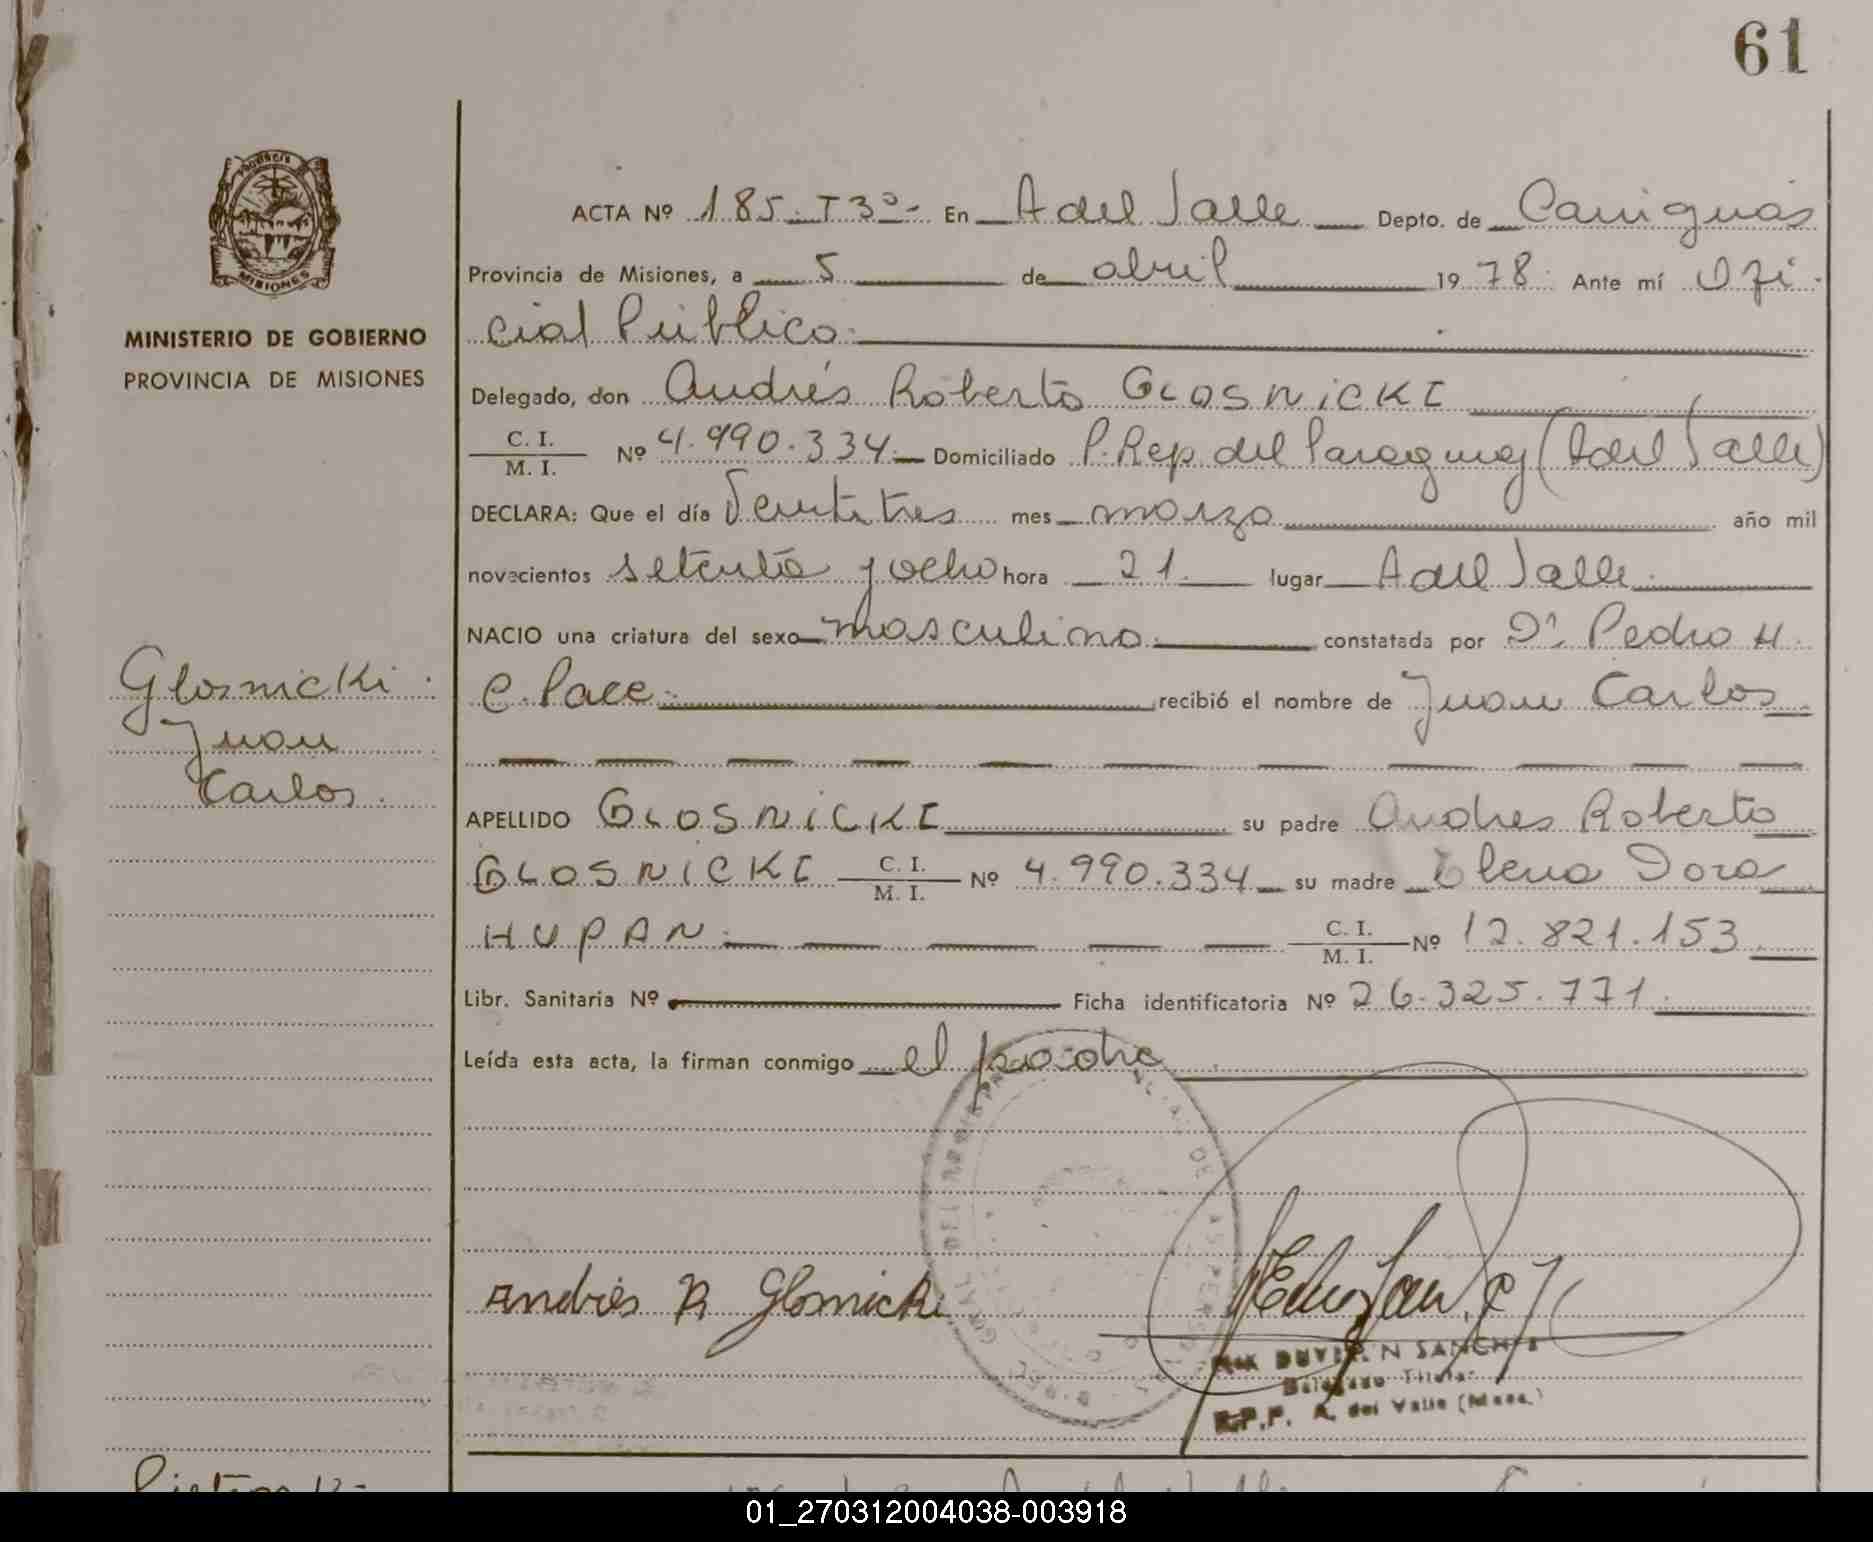 61
PROVINCIA
MISIONES
MINISTERIO DE GOBIERNO
PROVINCIA DE MISIONES
ACTA Nº 185. T 3º - En A del Valle Depto. de Cainguás
Provincia de Misiones, a 5 de abril 19 78. Ante mí Ofi-
cial Público.
Delegado, don Andrés Roberto GLOSNICKI
C. I.
M. I. Nº 4.990.334. Domiciliado P. Rep. del Paraguay (A del Valle)
DECLARA: Que el día Veintitres mes marzo año mil
novecientos setenta y ocho hora 21. lugar A del Valle.
NACIO una criatura del sexo masculino. constatada por Dr. Pedro H.
Glosnicki.
C. Pace. recibió el nombre de Juan Carlos
Juan
Carlos.
APELLIDO GLOSNICKI su padre Andres Roberto
GLOSNICKI C. I.
M. I. Nº 4.990.334 su madre Elena Dora
HUPAN. C. I.
M. I. Nº 12.821.153
Libr. Sanitaria Nº Ficha identificatoria Nº 26.325.771.
Leída esta acta, la firman conmigo el padre
Andrés R Glosnicki
SANCHEZ
Delegado Titular
R.P.P. A. del Valle (Mnes.)
01_270312004038-003918